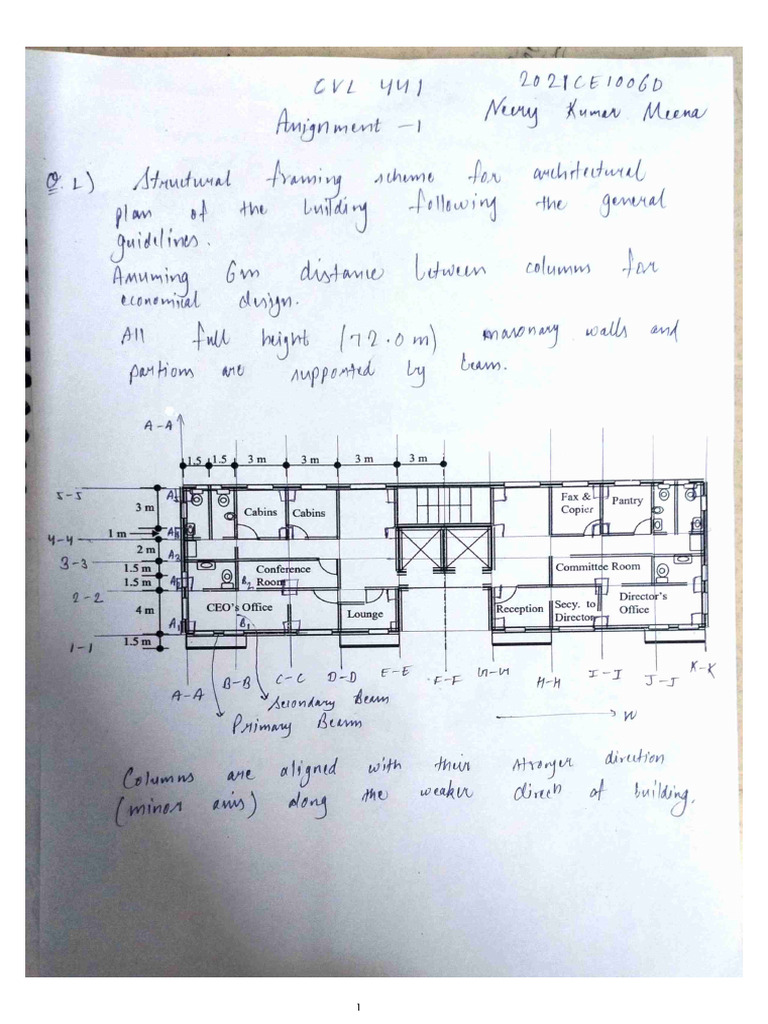 CVL 441
2021CE1006D
Anignment -1
Kumar Meena
Q.1) Structural framing scheme for architectural
plan of the building following the general
guidelines.
Anuming 6m distance between columns for
economical design.
All full height (72.0m) masonary walls and
partions are supported by beam.
A-A
1.5 1.5 3 m 3 m 3 m 3 m
5-5
3 m
Cabins Cabins
Fax &
Copier
Pantry
1 m
4-4
2 m
3-3
1.5 m
Conference
Room
Committee Room
1.5 m
B2
2-2
4 m
CEO's Office
Lounge
Reception
Secy. to
Director
Director's
Office
A1
B1
1-1
1.5 m
A-A B-B C-C D-D E-E F-F H-H I-I J-J K-K
Secondary Beam
Primary Beam
N
Columns are aligned with their stronger direction
(minor axis) along the weaker direcn of building.
1